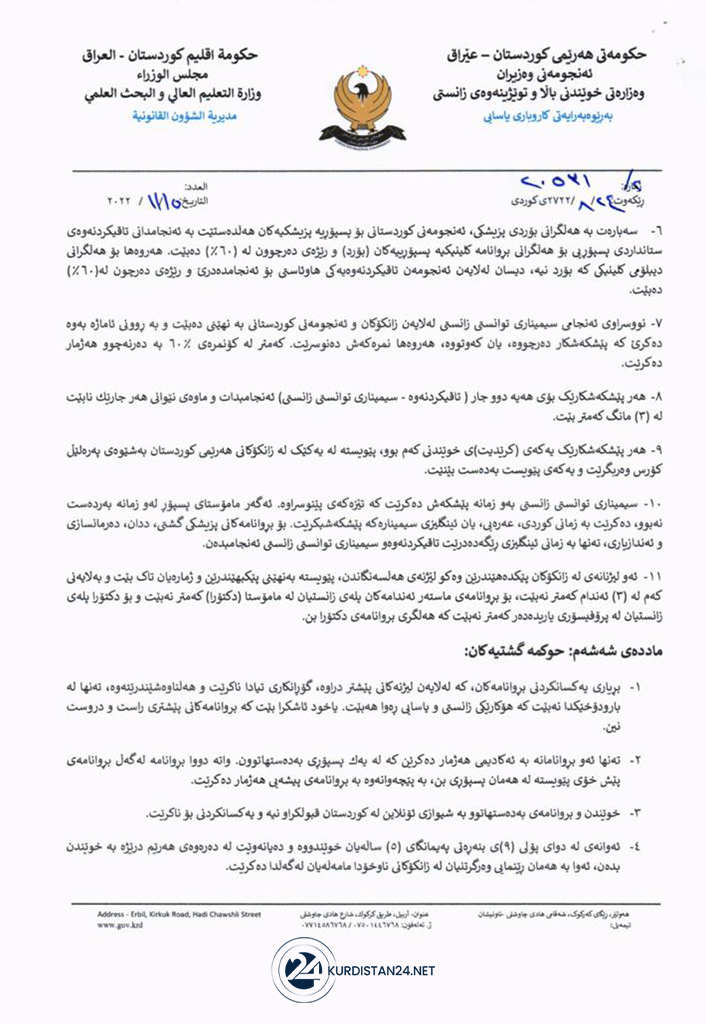 حكومەتی هەرێمی كوردستان – عێراق
ئەنجومەنی وەزیران
وەزارەتی خوێندنی باڵا و توێژینەوەی زانستی
بەڕێوەبەرایەتی كاروباری یاسایی
حكومة اقليم كوردستان - العراق
مجلس الوزراء
وزارة التعليم العالي و البحث العلمي
مديرية الشؤون القانونية
ژمارە: ٢٠٥٣١
ڕێکەوت: /٨/ ٢٧٢٢ی کوردی
العدد:
التاريخ: ١١/١٥/ ٢٠٢٢
٦- سەبارەت بە هەلگرانی بۆردی پزیشکی، ئەنجومەنی کوردستانی بۆ پسپۆڕیە پزیشکیەکان هەلدەستێت بە ئەنجامدانی تاقیکردنەوەی
ستانداردی پسپۆڕیی بۆ هەلگرانی بڕوانامە کلینیکیە پسپۆڕییەکان (بۆرد) و رێژەی دەرچوون لە (٦٠٪) دەبێت. هەروەها بۆ هەلگرانی
دیبلۆمی کلینیکی کە بۆرد نیە، دیسان لەلایەن ئەنجومەن تاقیکردنەوەیەکی هاوئاستی بۆ ئەنجامدەدرێ و رێژەی دەرچون لە(٦٠٪)
دەبێت.
٧- نووسراوی ئەنجامی سیمیناری توانستی زانستی لەلایەن زانکۆکان و ئەنجومەنی کوردستانی بە نهێنی دەبێت و بە ڕوونی ئاماژە بەوە
دەکرێ کە پێشکەشکار دەرچووە، یان کەوتووە، هەروەها نمرەکەش دەنوسرێت. کەمتر لە کۆنمرەی ٦٠٪ بە دەرنەچوو هەژمار
دەکرێت.
٨- هەر پێشکەشکارێک بۆی هەیە دوو جار ( تاقیکردنەوە - سیمیناری توانستی زانستی) ئەنجامبدات و ماوەی نێوانی هەر جارێك نابێت
لە (٣) مانگ کەمتر بێت.
٩- هەر پێشکەشکارێک یەکەی (کرێدیت)ی خوێندنی کەم بوو، پێویستە لە یەکێک لە زانکۆکانی هەرێمی کوردستان بەشێوەی پەرەلێل
کۆرس وەربگرێت و یەکەی پێویست بەدەست بێنێت.
١٠- سیمیناری توانستی زانستی بەو زمانە پێشکەش دەکرێت کە تێزەکەی پێنوسراوە. ئەگەر مامۆستای پسپۆڕ لەو زمانە بەردەست
نەبوو، دەکرێت بە زمانی کوردی، عەرەبی، یان ئینگلیزی سیمینارەکە پێشکەشبکرێت. بۆ بڕوانامەکانی پزیشکی گشتی، ددان، دەرمانسازی
و ئەندازیاری، تەنها بە زمانی ئینگلیزی رێگەدەدرێت تاقیکردنەوەو سیمیناری توانستی زانستی ئەنجامبدەن.
١١- ئەو لیژنانەی لە زانکۆکان پێکدەهێندرێن وەکو لێژنەی هەلسەنگاندن، پێویستە بەنهێنی پێکبهێندرێن و ژمارەیان تاک بێت و بەلایەنی
کەم لە (٣) ئەندام کەمتر نەبێت، بۆ بڕوانامەی ماستەر ئەندامەکان پلەی زانستیان لە مامۆستا (دکتۆرا) کەمتر نەبێت و بۆ دکتۆرا پلەی
زانستیان لە پرۆفیسۆری یاریدەدەر کەمتر نەبێت کە هەلگری بڕوانامەی دکتۆرا بن.
ماددەی شەشەم: حوکمە گشتیەکان:
١- بڕیاری یەکسانکردنی بڕوانامەکان، کە لەلایەن لیژنەکانی پێشتر دراوە، گۆڕانکاری تیادا ناکرێت و هەلناوەشێندرێتەوە، تەنها لە
بارودۆخێکدا نەبێت کە هۆکارێکی زانستی و یاسایی ڕەوا هەبێت. یاخود ئاشکرا بێت کە بڕوانامەکانی پێشتری راست و دروست
نین.
٢- تەنها ئەو بڕوانامانە بە ئەکادیمی هەژمار دەکرێن کە لە یەك پسپۆڕی بەدەستهاتوون. واتە دووا بڕوانامە لەگەل بڕوانامەی
پێش خۆی پێویستە لە هەمان پسپۆڕی بن، بە پێچەوانەوە بە بڕوانامەی پیشەیی هەژمار دەکرێت.
٣- خوێندن و بڕوانامەی بەدەستهاتوو بە شیوازی ئۆنلاین لە کوردستان قبولکراو نیە و یەکسانکردنی بۆ ناکرێت.
٤- ئەوانەی لە دوای پۆلی (٩)ی بنەڕەتی پەیمانگای (٥) سالەیان خوێندووە و دەیانەوێت لە دەرەوەی هەرێم درێژە بە خوێندن
بدەن، ئەوا بە هەمان ڕێنمایی وەرگرتنیان لە زانکۆکانی ناوخۆدا مامەلەیان لەگەلدا دەکرێت.
هەولێر، رێگای کەرکوک، شەقامی هادی چاوشلی -ناونیشان
ئیمەیل:
عنوان، أربيل، طريق كركوك، شارع هادي جاوشلي
ژ. تەلەفون: ٠٧٥٠١٤٤٦٧٦٨ / ٠٧٧١٤٥٨٦٧٦٨
Address - Erbil, Kirkuk Road, Hadi Chawshli Street
www.gov.krd
24 KURDISTAN24.NET